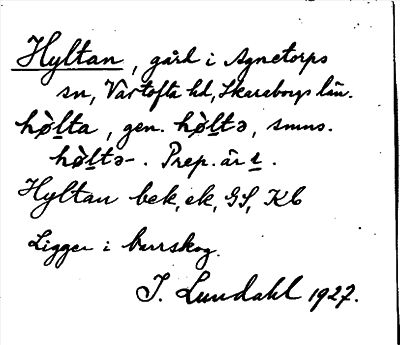 Hyltan, gård i Agnetorps
sn, Vartofta hd, Skaraborgs län.
hø̀lta, gen. hø̀ltə, smns.
hø̀ltə-. Prep. är i.
Hyltan bek, ek, GS, Kb
Ligger i barrskog.
I. Lundahl 1927.